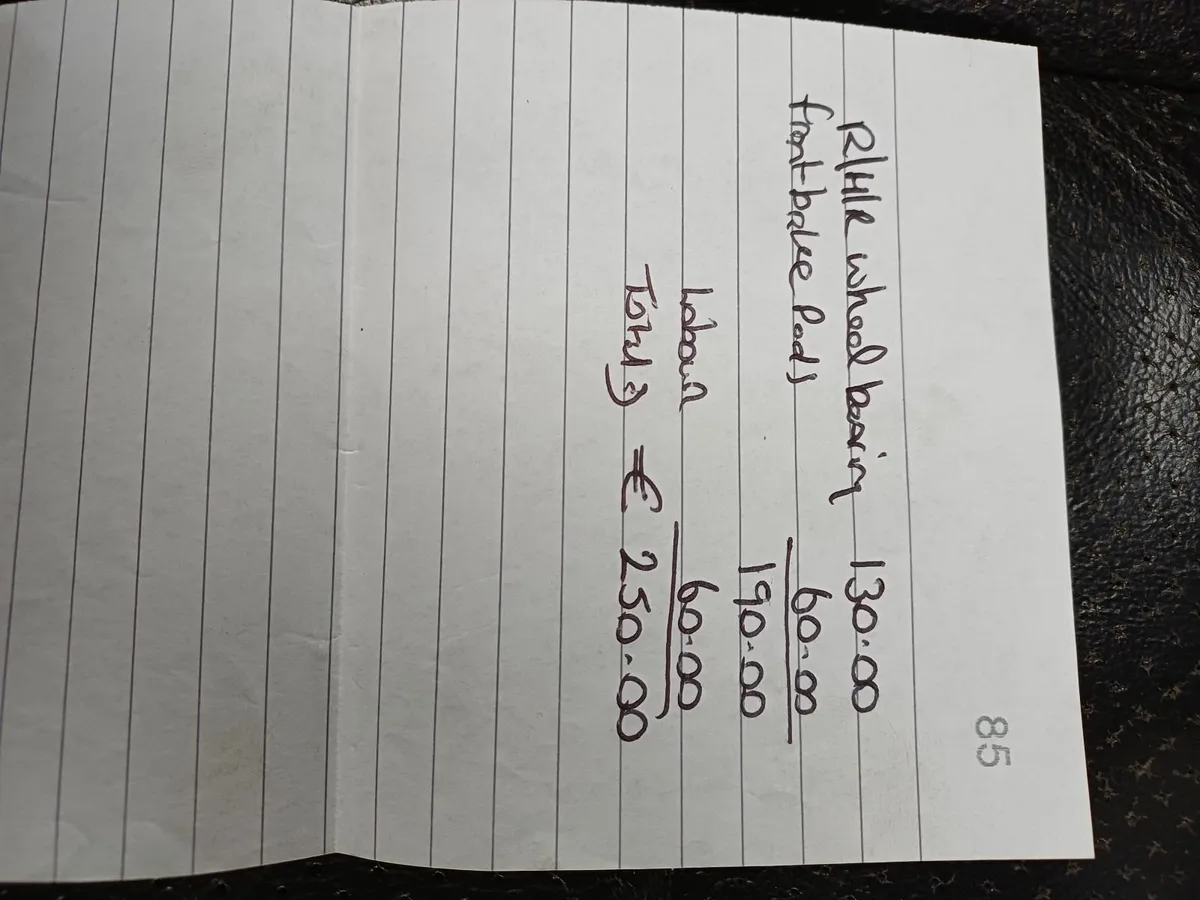 85
R/H/R wheel bearing 130.00
front brake Pads 60.00
190.00
Labour 60.00
Total = € 250.00